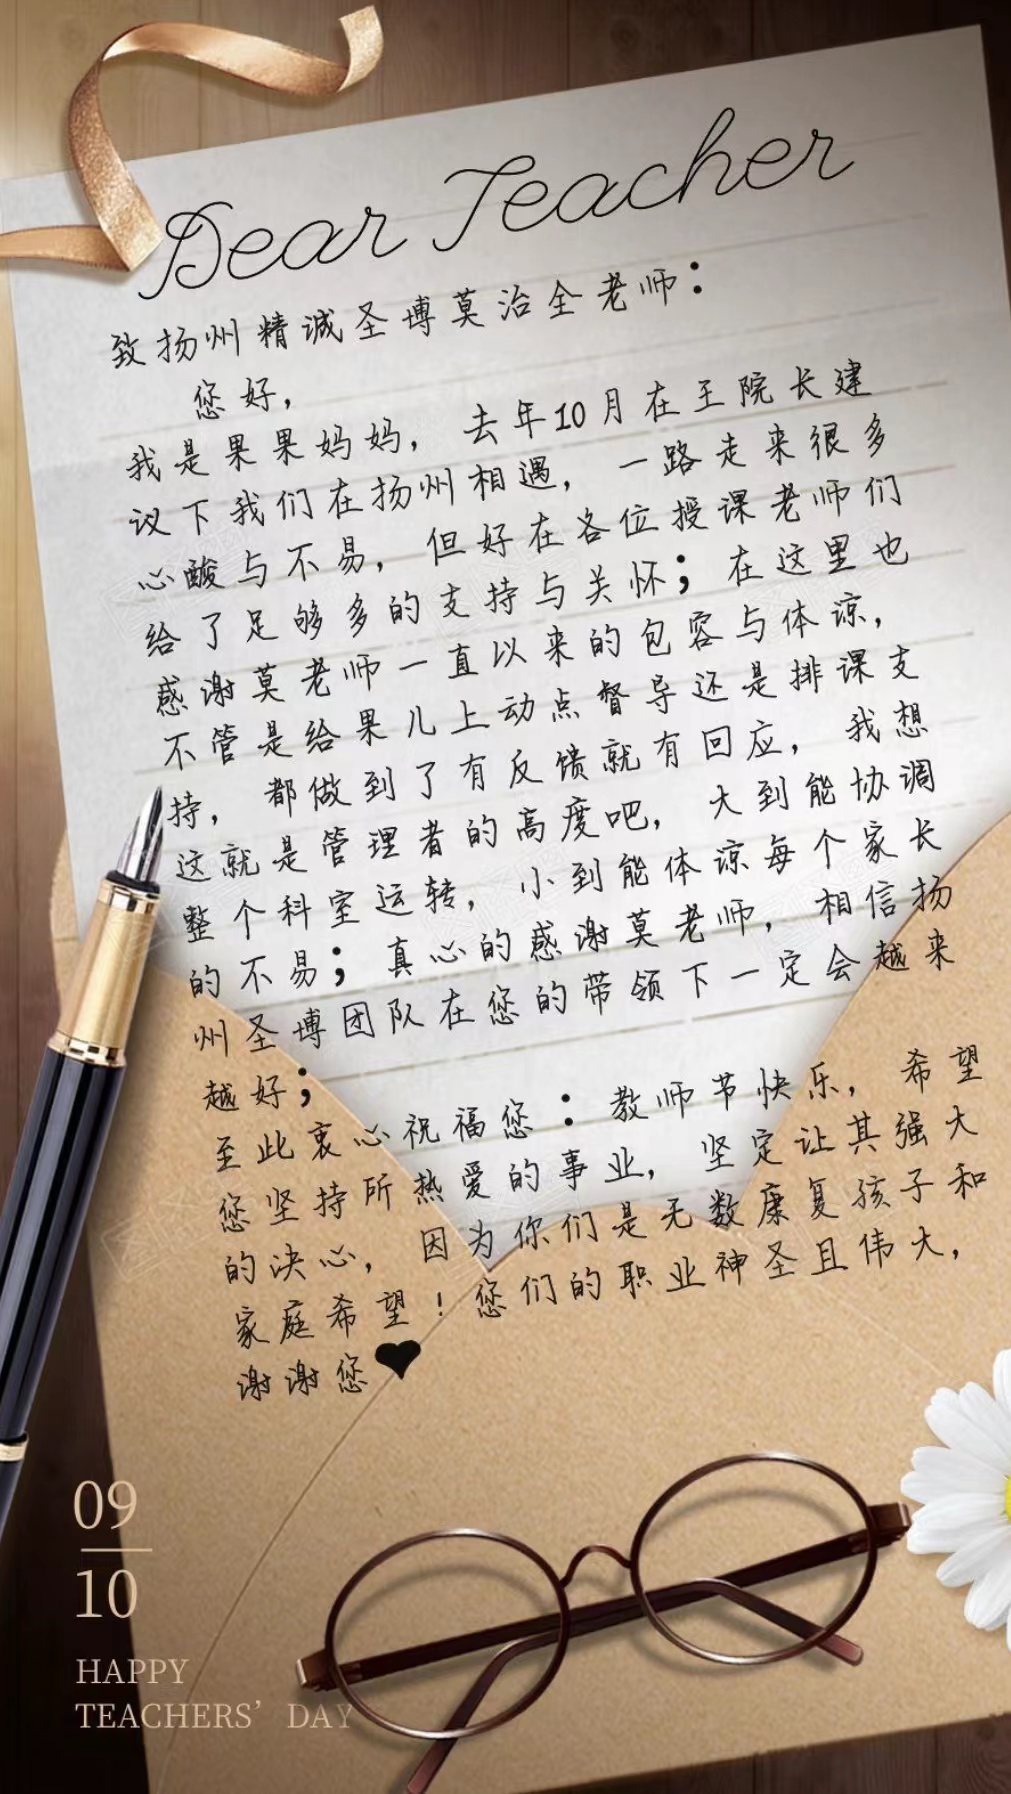 Dear Teacher
致扬州精诚圣博莫治全老师：
您好，
我是果果妈妈，去年10月在王院长建
议下我们在扬州相遇，一路走来很多
心酸与不易，但好在各位授课老师们
给了足够多的支持与关怀；在这里也
感谢莫老师一直以来的包容与体谅，
不管是给果儿上动点督导还是排课支
持，都做到了有反馈就有回应，我想
这就是管理者的高度吧，大到能协调
整个科室运转，小到能体谅每个家长
的不易；真心的感谢莫老师，相信扬
州圣博团队在您的带领下一定会越来
越好；
至此衷心祝福您：教师节快乐，希望
您坚持所热爱的事业，坚定让其强大
的决心，因为你们是无数康复孩子和
家庭希望！您们的职业神圣且伟大，
谢谢您
09
10
HAPPY
TEACHERS' DAY